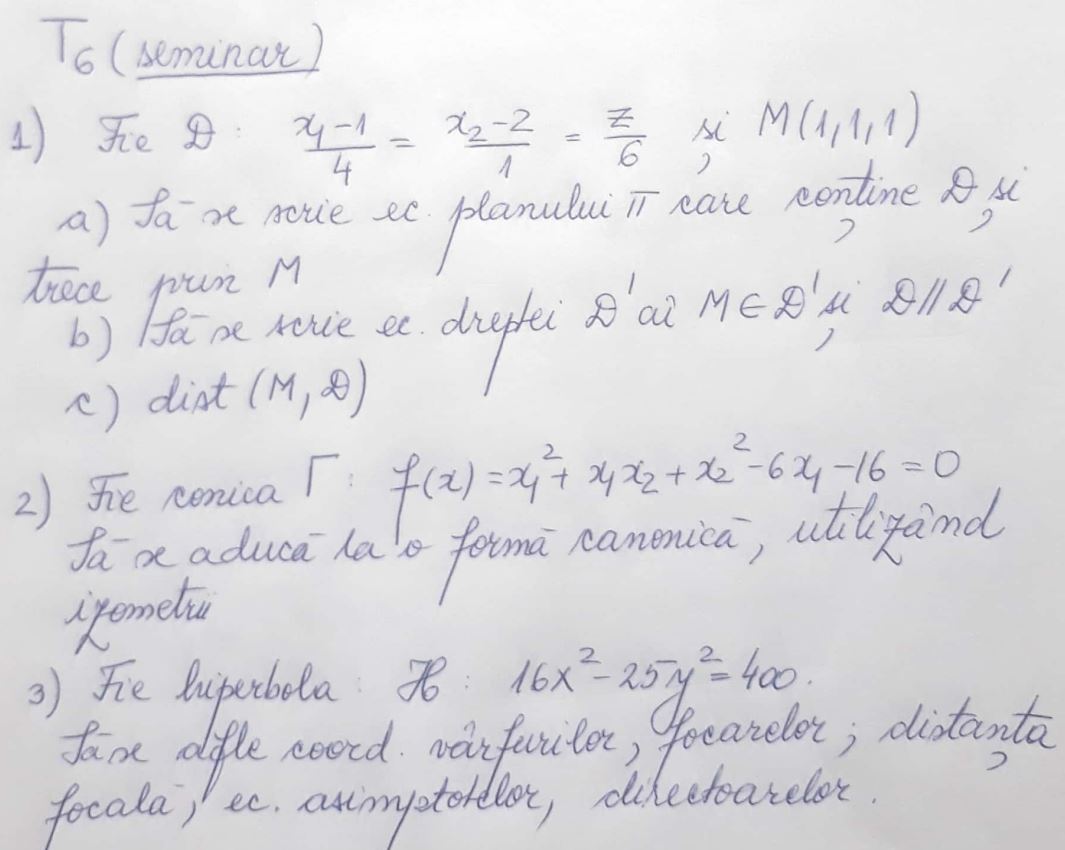 T₆ (seminar)
1) Fie D : (x₁-1)/4 = (x₂-2)/1 = z/6 și M(1,1,1)
a) Să se scrie ec. planului π care conține D și
trece prin M
b) Să se scrie ec. dreptei D' aî M ∈ D' și D // D'
c) dist (M, D)
2) Fie conica Γ : f(x) = x₁² + x₁x₂ + x₂² - 6x₁ - 16 = 0
Să se aducă la o formă canonică, utilizând
izometrii
3) Fie hiperbola : H : 16x² - 25y² = 400.
Să se afle coord. vârfurilor, focarelor ; distanța
focală, ec. asimptotelor, directoarelor.